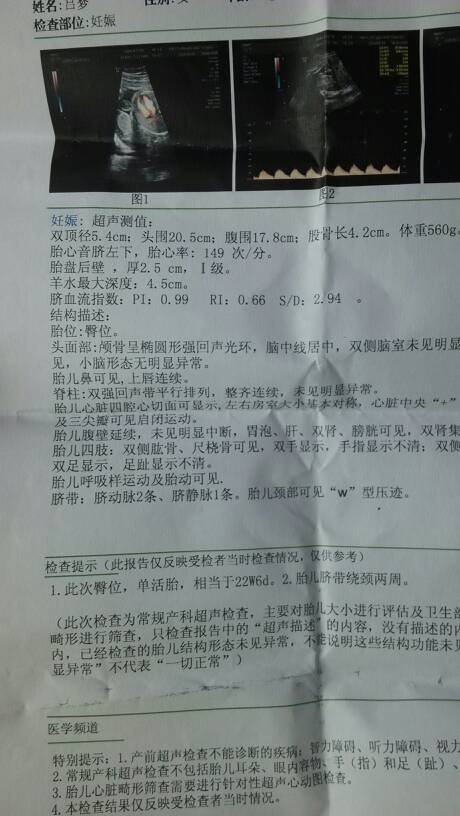 姓名:吕梦
检查部位:妊娠
图1
图2
妊娠: 超声测值:
双顶径5.4cm; 头围20.5cm; 腹围17.8cm; 股骨长4.2cm。体重560g
胎心音脐左下, 胎心率: 149 次/分。
胎盘后壁 , 厚2.5 cm, Ⅰ级。
羊水最大深度: 4.5cm。
脐血流指数: PI: 0.99 RI: 0.66 S/D: 2.94 。
结构描述:
胎位:臀位。
头面部:颅骨呈椭圆形强回声光环, 脑中线居中, 双侧脑室未见明显
见, 小脑形态无明显异常。
胎儿鼻可见,上唇连续。
脊柱:双强回声带平行排列, 整齐连续, 未见明显异常。
胎儿心脏四腔心切面可显示,左右房室大小基本对称, 心脏中央“+”
及三尖瓣可见启闭运动。
胎儿腹壁延续, 未见明显中断, 胃泡、肝、双肾、膀胱可见, 双肾集
胎儿四肢: 双侧肱骨、尺桡骨可见, 双手显示, 手指显示不清; 双侧
双足显示, 足趾显示不清。
胎儿呼吸样运动及胎动可见.
脐带: 脐动脉2条、脐静脉1条。胎儿颈部可见“w”型压迹。
检查提示 (此报告仅反映受检者当时检查情况, 仅供参考)
1.此次臀位, 单活胎, 相当于22W6d。2.胎儿脐带绕颈两周。
(此次检查为常规产科超声检查, 主要对胎儿大小进行评估及卫生部
畸形进行筛查, 只检查报告中的“超声描述”的内容, 没有描述的内
内, 已经检查的胎儿结构形态未见异常, 不能说明这些结构功能未见
显异常”不代表“一切正常”)
医学频道
特别提示: 1.产前超声检查不能诊断的疾病: 智力障碍、听力障碍、视力
2.常规产科超声检查不包括胎儿耳朵、眼内容物、手(指)和足(趾)、
3.胎儿心脏畸形筛查需要进行针对性超声心动图检查。
4.本检查结果仅反映受检者当时情况。